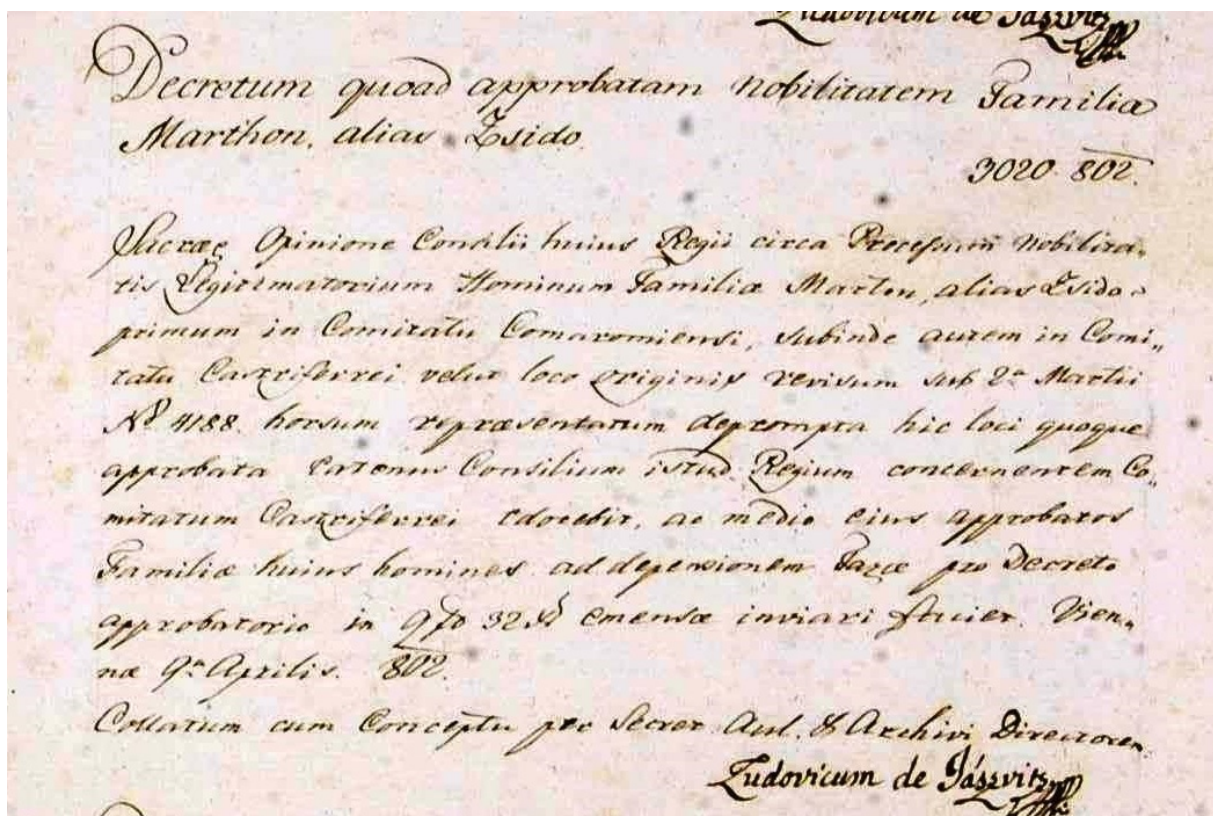 Ludovicum de Jászvitz
Decretum quoad approbatam nobilitatem Familiæ
Marthon, alias Zsido.
3020. 802.
Sacræ Opinione Consilii huius Regii circa Processum nobilita„
tis Legitimatorium Hominum Familiæ Marton, alias Zsido
primum in Comitatu Comaromiensi, subinde autem in Comi„
tatu Castriferrei velut loco originis revisum sub 2a Martii
No 4188. horsum repræsentatum deprompta hic loci quoque
approbata eatenus Consilium istud Regium concernentem Co„
mitatum Castriferrei edocebit, ac medio eius approbatos
Familiæ huius homines ad depensionem Taxæ pro Decreto
approbatorio in 32 emensæ inviari faciet. Vien„
næ 9a Aprilis. 802.
Collatum cum Conceptu per Secret. Aul. & Archivi Directorem
Ludovicum de Jászvitz